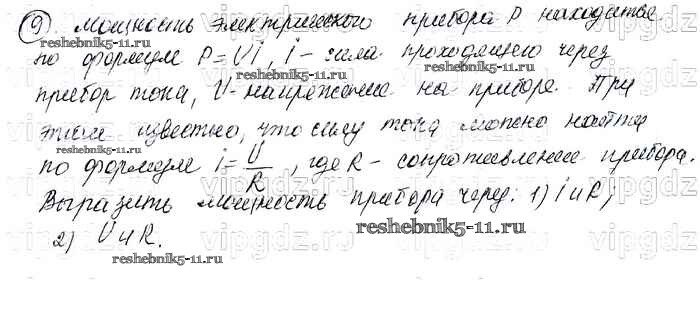 9) Мощность электрического прибора P находится
по формуле P=Ui, i - сила проходящего через
прибор тока, U - напряжение на приборе. При
этом известно, что силу тока можно найти
по формуле i=U/R, где R - сопротивление прибора.
Выразить мощность прибора через: 1) i и R;
2) U и R.
reshebnik5-11.ru
reshebnik5-11.ru
reshebnik5-11.ru
reshebnik5-11.ru
reshebnik5-11.ru
reshebnik5-11.ru
reshebnik5-11.ru
reshebnik5-11.ru
vipgdz
vipgdz
vipgdz